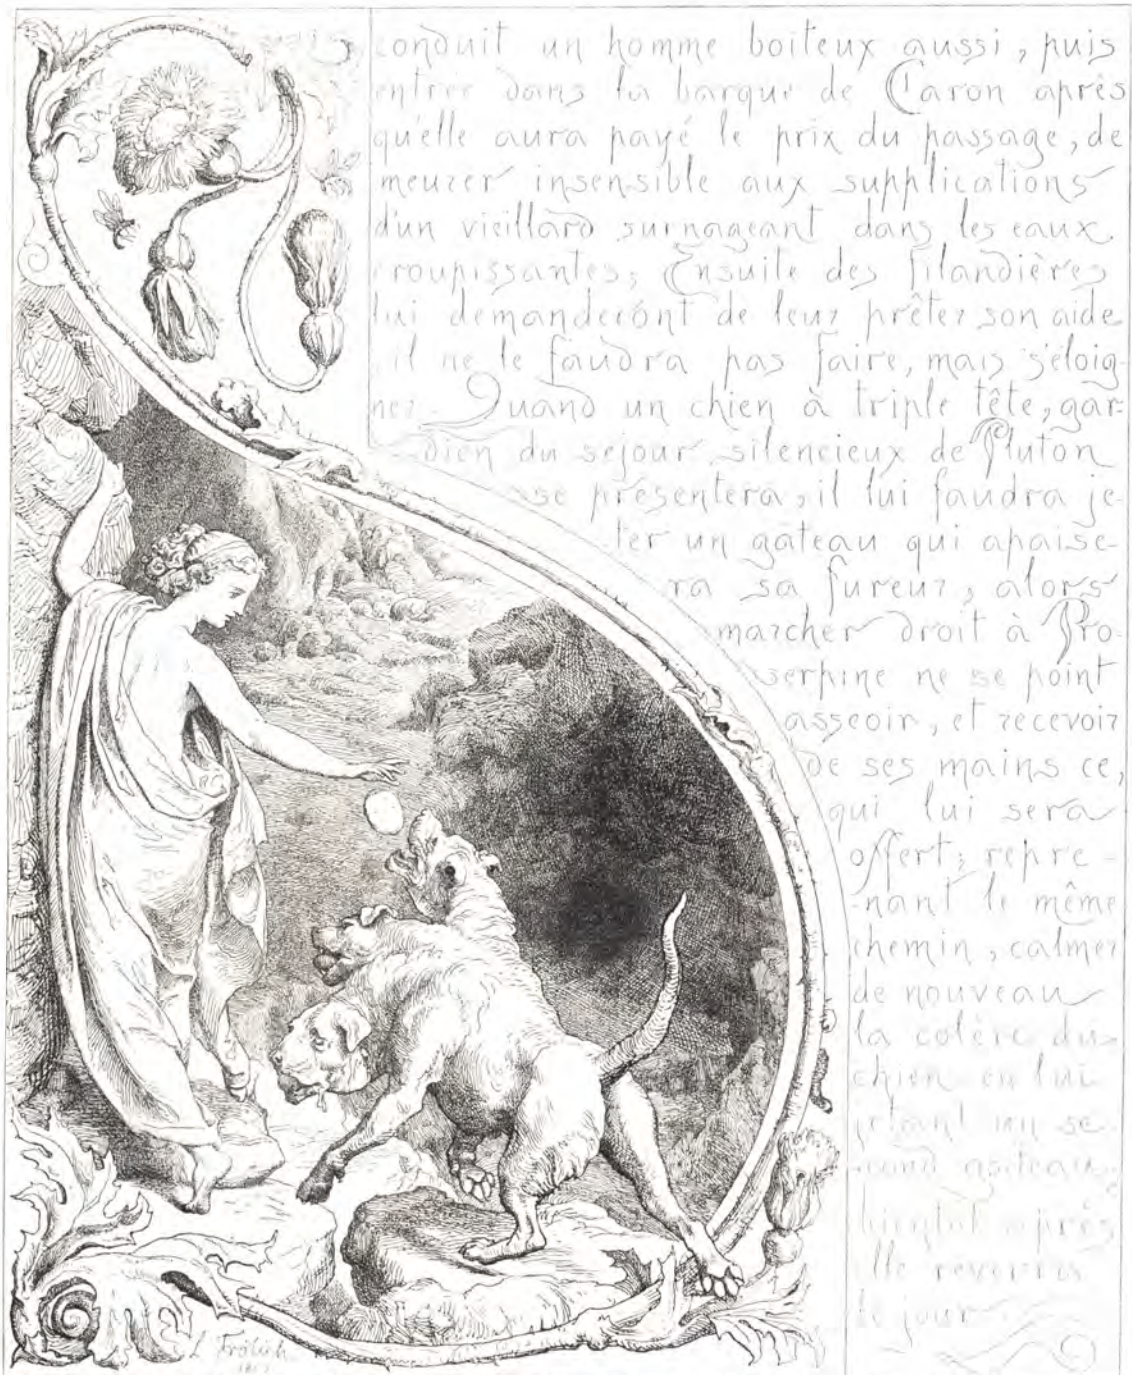 conduit un homme boiteux aussi, puis
entrer dans la barque de Caron après
qu'elle aura payé le prix du passage, de
meurer insensible aux supplications
d'un vieillard surnageant dans les eaux
croupissantes; Ensuite des filandières
lui demanderont de leur prêter son aide
il ne le faudra pas faire, mais s'éloig-
ner. Quand un chien à triple tête, gar-
dien du sejour silencieux de Pluton
se présentera, il lui faudra je-
ter un gateau qui apaise-
ra sa fureur, alors
marcher droit à Pro-
serpine ne se point
asseoir, et recevoir
de ses mains ce,
qui lui sera
offert; repre-
-nant le même
chemin, calmer
de nouveau
la colère du
chien en lui
jetant un se-
cond gateau,
bientot après
elle reverra
le jour
L. Frölich